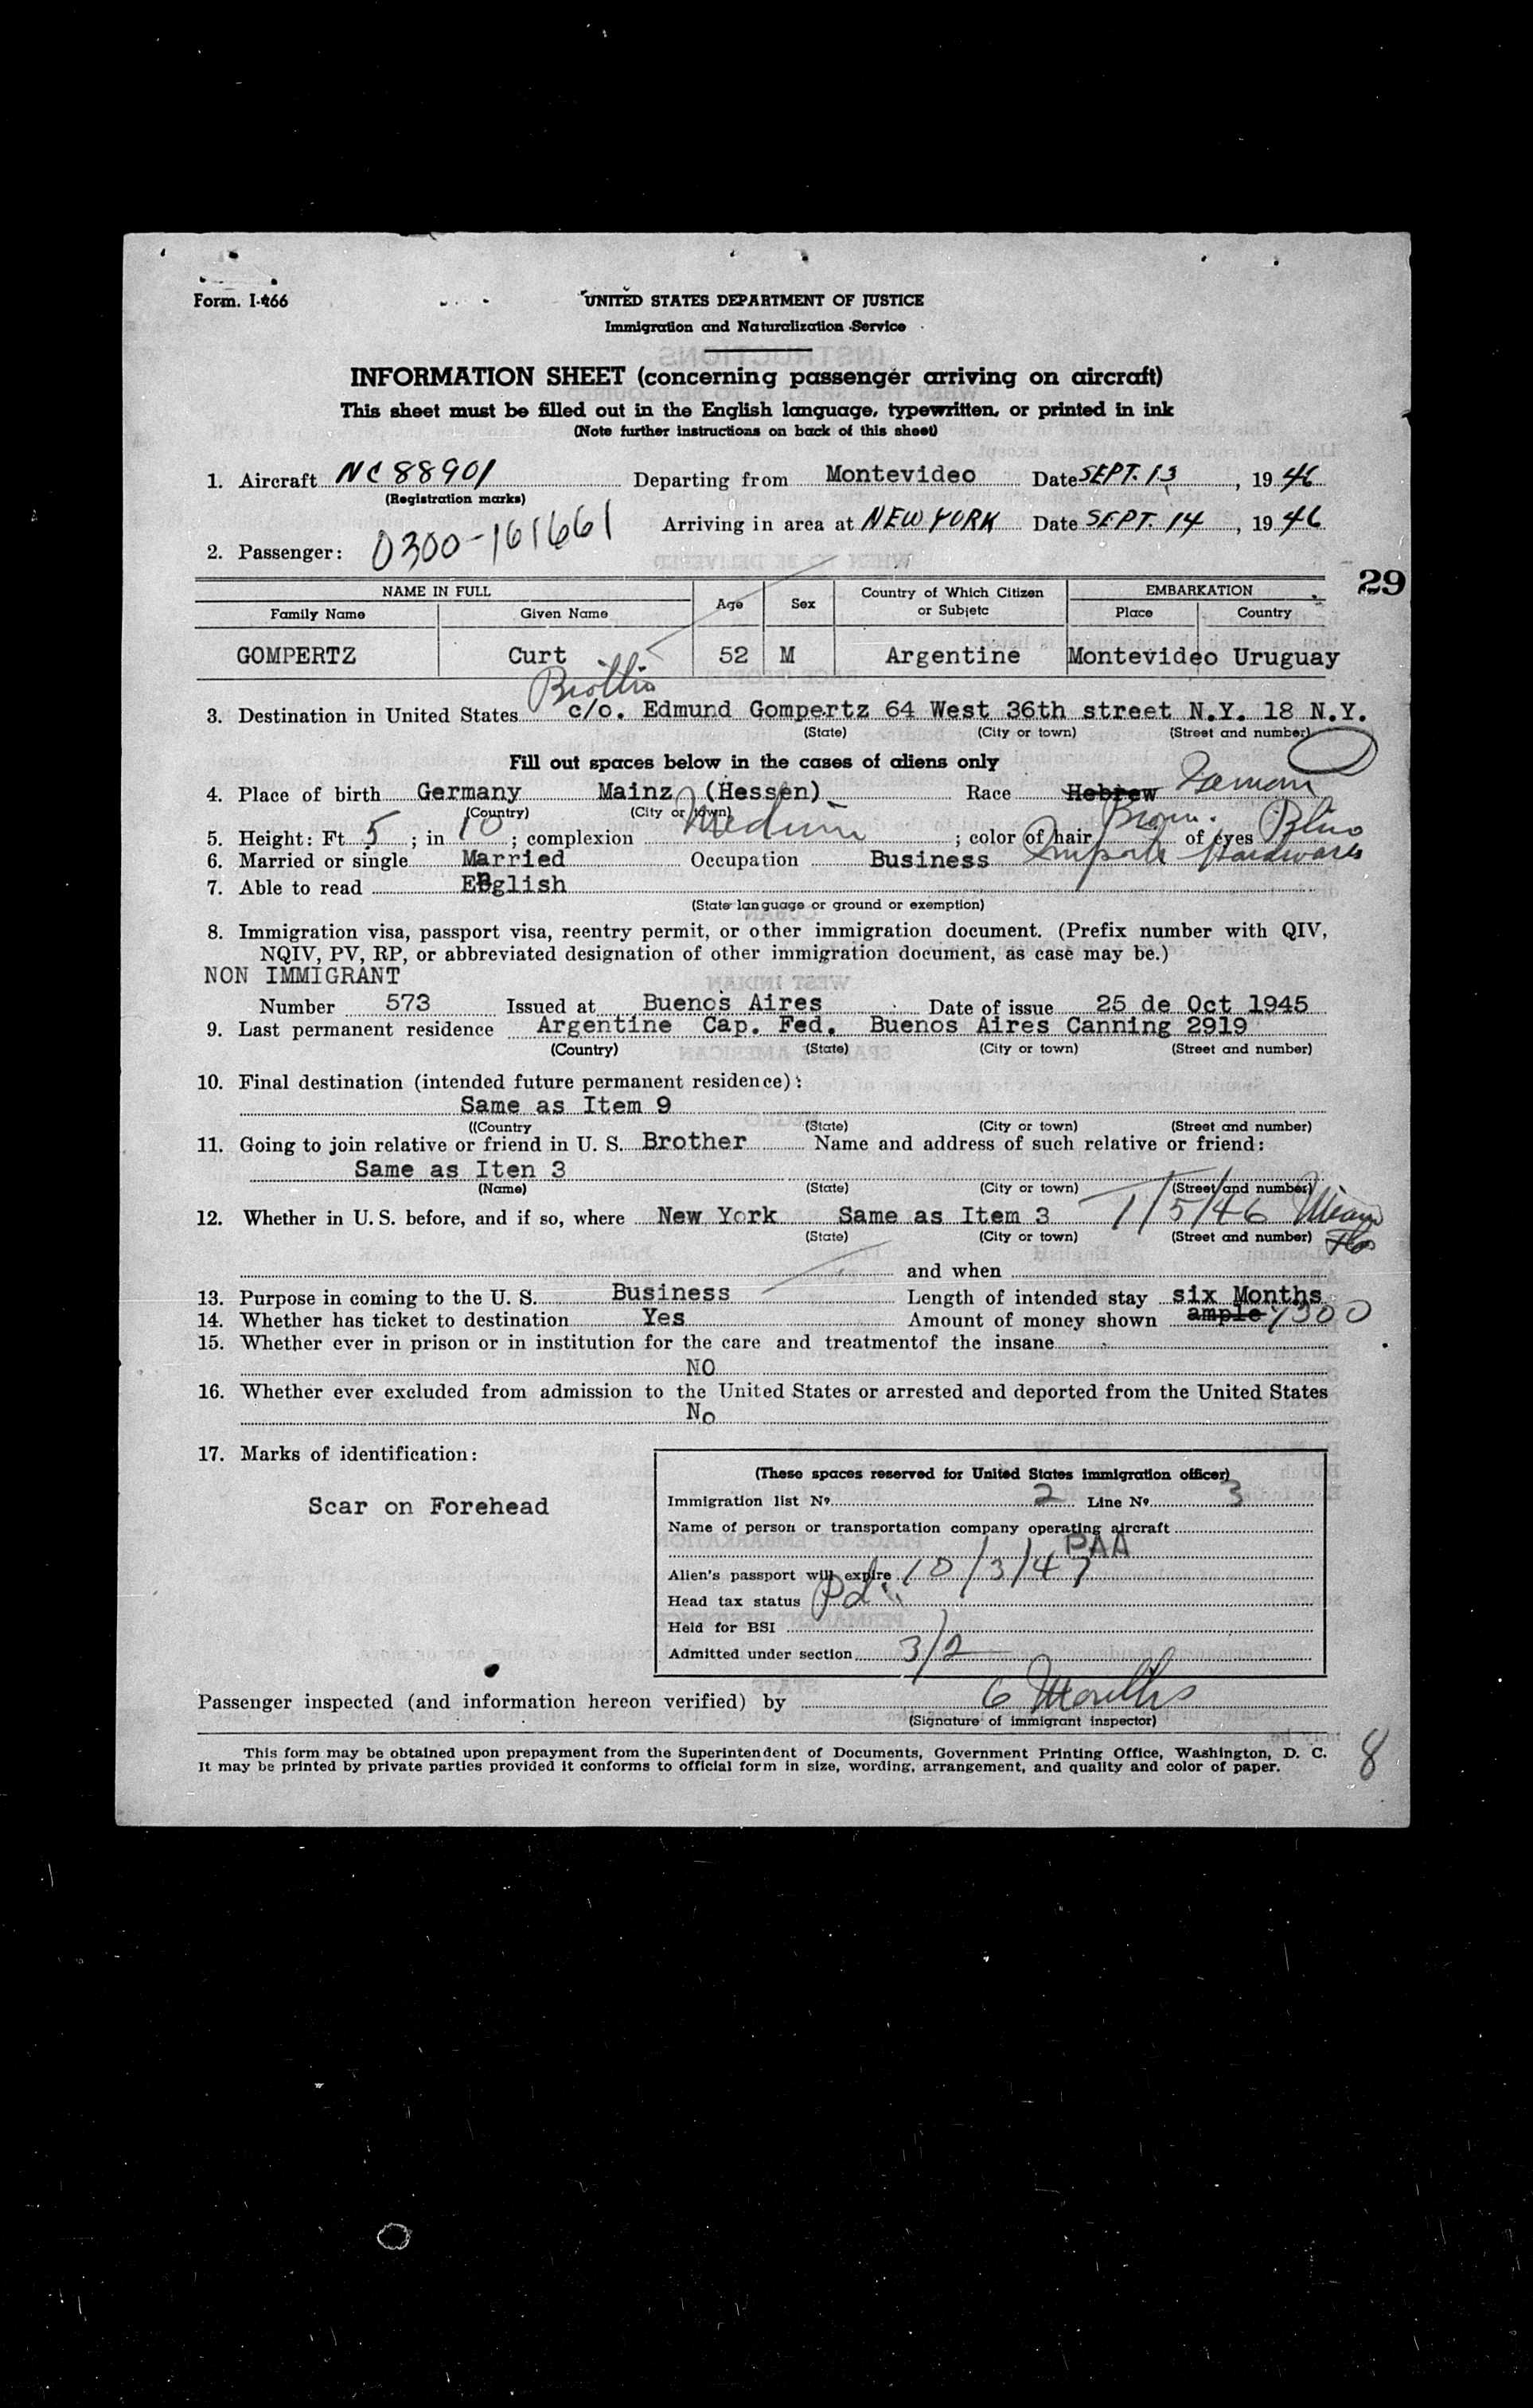 Form. I-466
UNITED STATES DEPARTMENT OF JUSTICE
Immigration and Naturalization Service
INFORMATION SHEET (concerning passenger arriving on aircraft)
This sheet must be filled out in the English language, typewritten, or printed in ink
(Note further instructions on back of this sheet)
1. Aircraft NC 88901 Departing from Montevideo Date SEPT. 13, 19 46
(Registration marks)
Arriving in area at NEW YORK Date SEPT. 14, 19 46
2. Passenger: 0300-161661
29
NAME IN FULL Age Sex Country of Which Citizen or Subjetc EMBARKATION
Family Name Given Name Place Country
GOMPERTZ Curt 52 M Argentine Montevideo Uruguay
Brother
3. Destination in United States c/o. Edmund Gompertz 64 West 36th street N.Y. 18 N.Y.
(State) (City or town) (Street and number)
Fill out spaces below in the cases of aliens only
4. Place of birth Germany Mainz (Hessen) Race Hebrew German
(Country) (City or town)
5. Height: Ft 5; in 10; complexion Medium; color of hair Brown. of eyes Blue
6. Married or single Married Occupation Business Hardware
7. Able to read English
(State language or ground or exemption)
8. Immigration visa, passport visa, reentry permit, or other immigration document. (Prefix number with QIV,
NQIV, PV, RP, or abbreviated designation of other immigration document, as case may be.)
NON IMMIGRANT
Number 573 Issued at Buenos Aires Date of issue 25 de Oct 1945
9. Last permanent residence Argentine Cap. Fed. Buenos Aires Canning 2919
(Country) (State) (City or town) (Street and number)
10. Final destination (intended future permanent residence):
Same as Item 9
((Country (State) (City or town) (Street and number)
11. Going to join relative or friend in U. S. Brother Name and address of such relative or friend:
Same as Iten 3
(Name) (State) (City or town) (Street and number)
12. Whether in U. S. before, and if so, where New York Same as Item 3 1/5/46 Miami Fla
(State) (City or town) (Street and number)
and when
13. Purpose in coming to the U. S. Business Length of intended stay six Months
14. Whether has ticket to destination Yes Amount of money shown ample 1300
15. Whether ever in prison or in institution for the care and treatmentof the insane
NO
16. Whether ever excluded from admission to the United States or arrested and deported from the United States
No
17. Marks of identification:
Scar on Forehead
(These spaces reserved for United States immigration officer)
Immigration list Nº 2 Line Nº 3
Name of person or transportation company operating aircraft
PAA
Alien's passport will expire 10/3/47
Head tax status Pd.
Held for BSI
Admitted under section 3/2
Passenger inspected (and information hereon verified) by 6 Months
(Signature of immigrant inspector)
This form may be obtained upon prepayment from the Superintendent of Documents, Government Printing Office, Washington, D. C.
It may be printed by private parties provided it conforms to official form in size, wording, arrangement, and quality and color of paper.
8